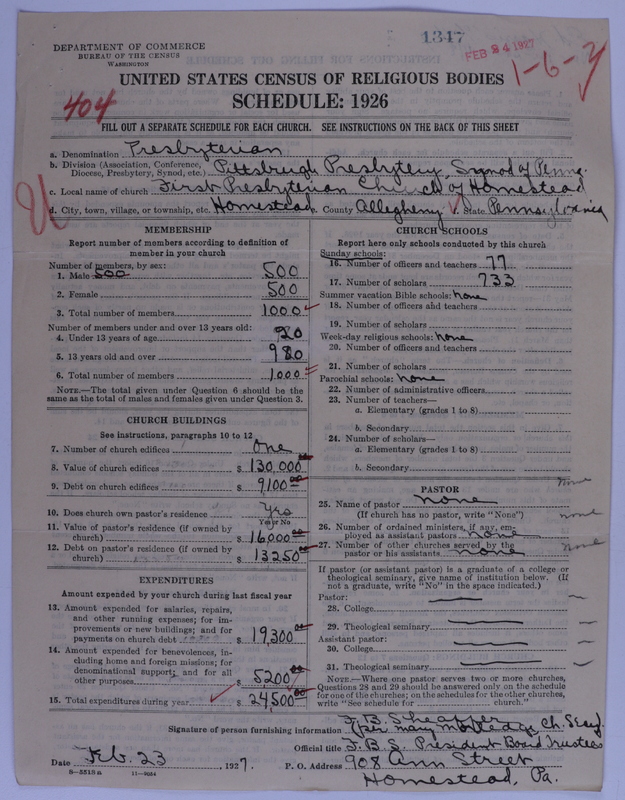 1347
FEB 24 1927
1-6-y
404
DEPARTMENT OF COMMERCE
BUREAU OF THE CENSUS
WASHINGTON
UNITED STATES CENSUS OF RELIGIOUS BODIES
SCHEDULE: 1926
FILL OUT A SEPARATE SCHEDULE FOR EACH CHURCH. SEE INSTRUCTIONS ON THE BACK OF THIS SHEET
a. Denomination Presbyterian
b. Division (Association, Conference, Diocese, Presbytery, Synod, etc.) Pittsburgh Presbytery, Synod of Penna.
c. Local name of church First Presbyterian Church of Homestead
d. City, town, village, or township, etc. Homestead e. County Allegheny f. State Pennsylvania
U
MEMBERSHIP
Report number of members according to definition of
member in your church
Number of members, by sex:
1. Male 500 500
2. Female 500
3. Total number of members 1000
Number of members under and over 13 years old:
4. Under 13 years of age 20
5. 13 years old and over 980
6. Total number of members 1000
NOTE.—The total given under Question 6 should be
same as the total of males and females given under Question 3.
CHURCH BUILDINGS
See instructions, paragraphs 10 to 12
7. Number of church edifices One
8. Value of church edifices $ 130,000.00
9. Debt on church edifices $ 9100.00
10. Does church own pastor's residence Yes
Yes or No
11. Value of pastor's residence (if owned by
church) $ 16000.00
12. Debt on pastor's residence (if owned by
church) $ 13250.00
EXPENDITURES
Amount expended by your church during last fiscal year
13. Amount expended for salaries, repairs,
and other running expenses; for im-
provements or new buildings; and for
payments on church debt $ 19300.00
14. Amount expended for benevolences, in-
cluding home and foreign missions; for
denominational support; and for all
other purposes $ 5200.00
15. Total expenditures during year $ 24,500.00
CHURCH SCHOOLS
Report here only schools conducted by this church
Sunday schools:
16. Number of officers and teachers 77
17. Number of scholars 733
Summer vacation Bible schools: None
18. Number of officers and teachers
19. Number of scholars
Week-day religious schools: None
20. Number of officers and teachers
21. Number of scholars
Parochial schools: None
22. Number of administrative officers
23. Number of teachers—
a. Elementary (grades 1 to 8)
b. Secondary
24. Number of scholars—
a. Elementary (grades 1 to 8)
b. Secondary
PASTOR
25. Name of pastor None None
(If church has no pastor, write "None")
26. Number of ordained ministers, if any, em-
ployed as assistant pastors None None
27. Number of other churches served by the
pastor or his assistants None None
If pastor (or assistant pastor) is a graduate of a college or
theological seminary, give name of institution below. (If
not a graduate, write "No" in the space indicated.)
Pastor:
28. College
29. Theological seminary
Assistant pastor:
30. College
31. Theological seminary
NOTE.—Where one pastor serves two or more churches,
Questions 28 and 29 should be answered only on the schedule
for one of the churches; on the schedules for the other churches,
write "See schedule for church."
Signature of person furnishing information
Official title J.B.S. President Board Trustees
Date Feb. 23, 1927. P. O. Address 908 Ann Street
8—5518 a 11—9034
Homestead, Pa.